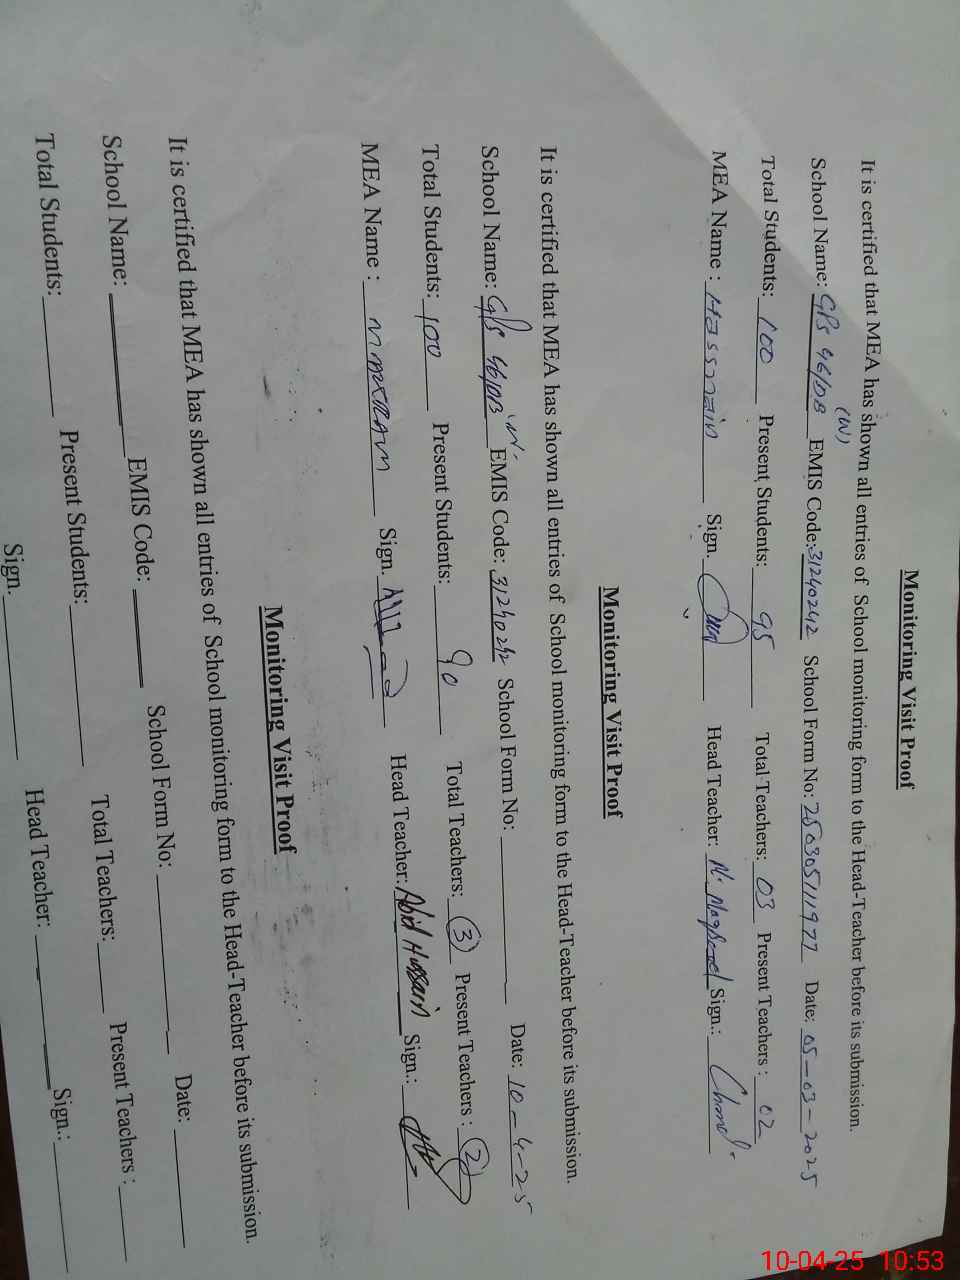 Monitoring Visit Proof
It is certified that MEA has shown all entries of School monitoring form to the Head-Teacher before its submission.
(W)
School Name: GPS 46/DB EMIS Code: 31240242 School Form No: Date: 05-03-2025
Total Students: 100 Present Students: 95 Total Teachers: 03 Present Teachers : 02
MEA Name : Hassnain Sign. Head Teacher: Sign.:
Monitoring Visit Proof
It is certified that MEA has shown all entries of School monitoring form to the Head-Teacher before its submission.
School Name: GPS 46/DB "W" EMIS Code: 31240242 School Form No: Date: 10-4-25
Total Students: 100 Present Students: 90 Total Teachers: 3 Present Teachers : 2
MEA Name : Sign. Head Teacher: Abid Hussain Sign.:
Monitoring Visit Proof
It is certified that MEA has shown all entries of School monitoring form to the Head-Teacher before its submission.
School Name: EMIS Code: School Form No: Date:
Total Students: Present Students: Total Teachers: Present Teachers :
Sign. Head Teacher: Sign.:
10-04-25 10:53